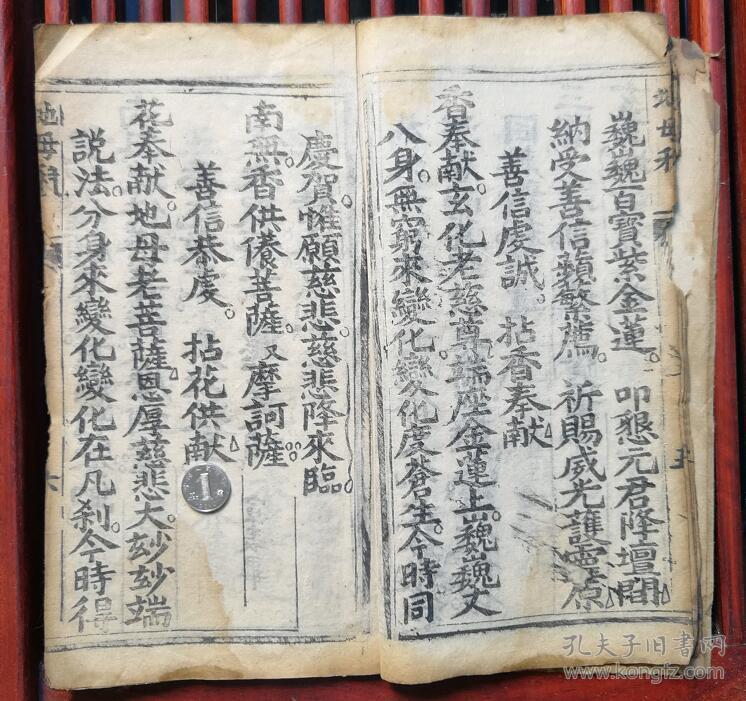 巍巍百寶紫金蓮。叩懇元君降壇閣
納受善信蘋繁薦。祈賜威光護靈原
善信虔誠。拈香奉献
香奉献。玄化老慈尊端座金蓮上。巍巍丈
八身。無窮來變化。变化度蒼生。今時同
慶賀。惟願慈悲。慈悲降來臨。
南無。香供養菩薩。又摩訶薩。
善信恭虔。拈花供献
花奉献。地母老菩薩恩厚慈悲大。玅玅端
説法。分身來變化變化在凡刹。今時得
地母科
六
五
1
孔夫子旧书网
www.kongfz.com